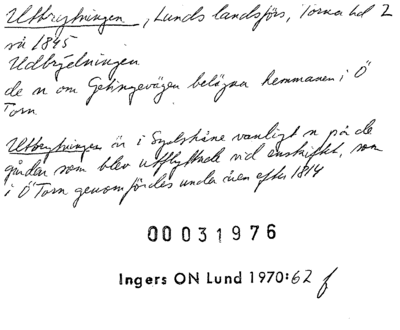 Utbrytningen, Lunds landsförs, Torna hd Z
rå 1845
Udbrÿdningen
de n om Getingevägen belägna hemmanen i Ö
Torn
Utbrytningen är i Sydskåne vanligt n på de
gårdar som blev utflyttade vid enskiftet, som
i Ö Torn genomfördes under åren efter 1814
00031976
Ingers ON Lund 1970:62 f